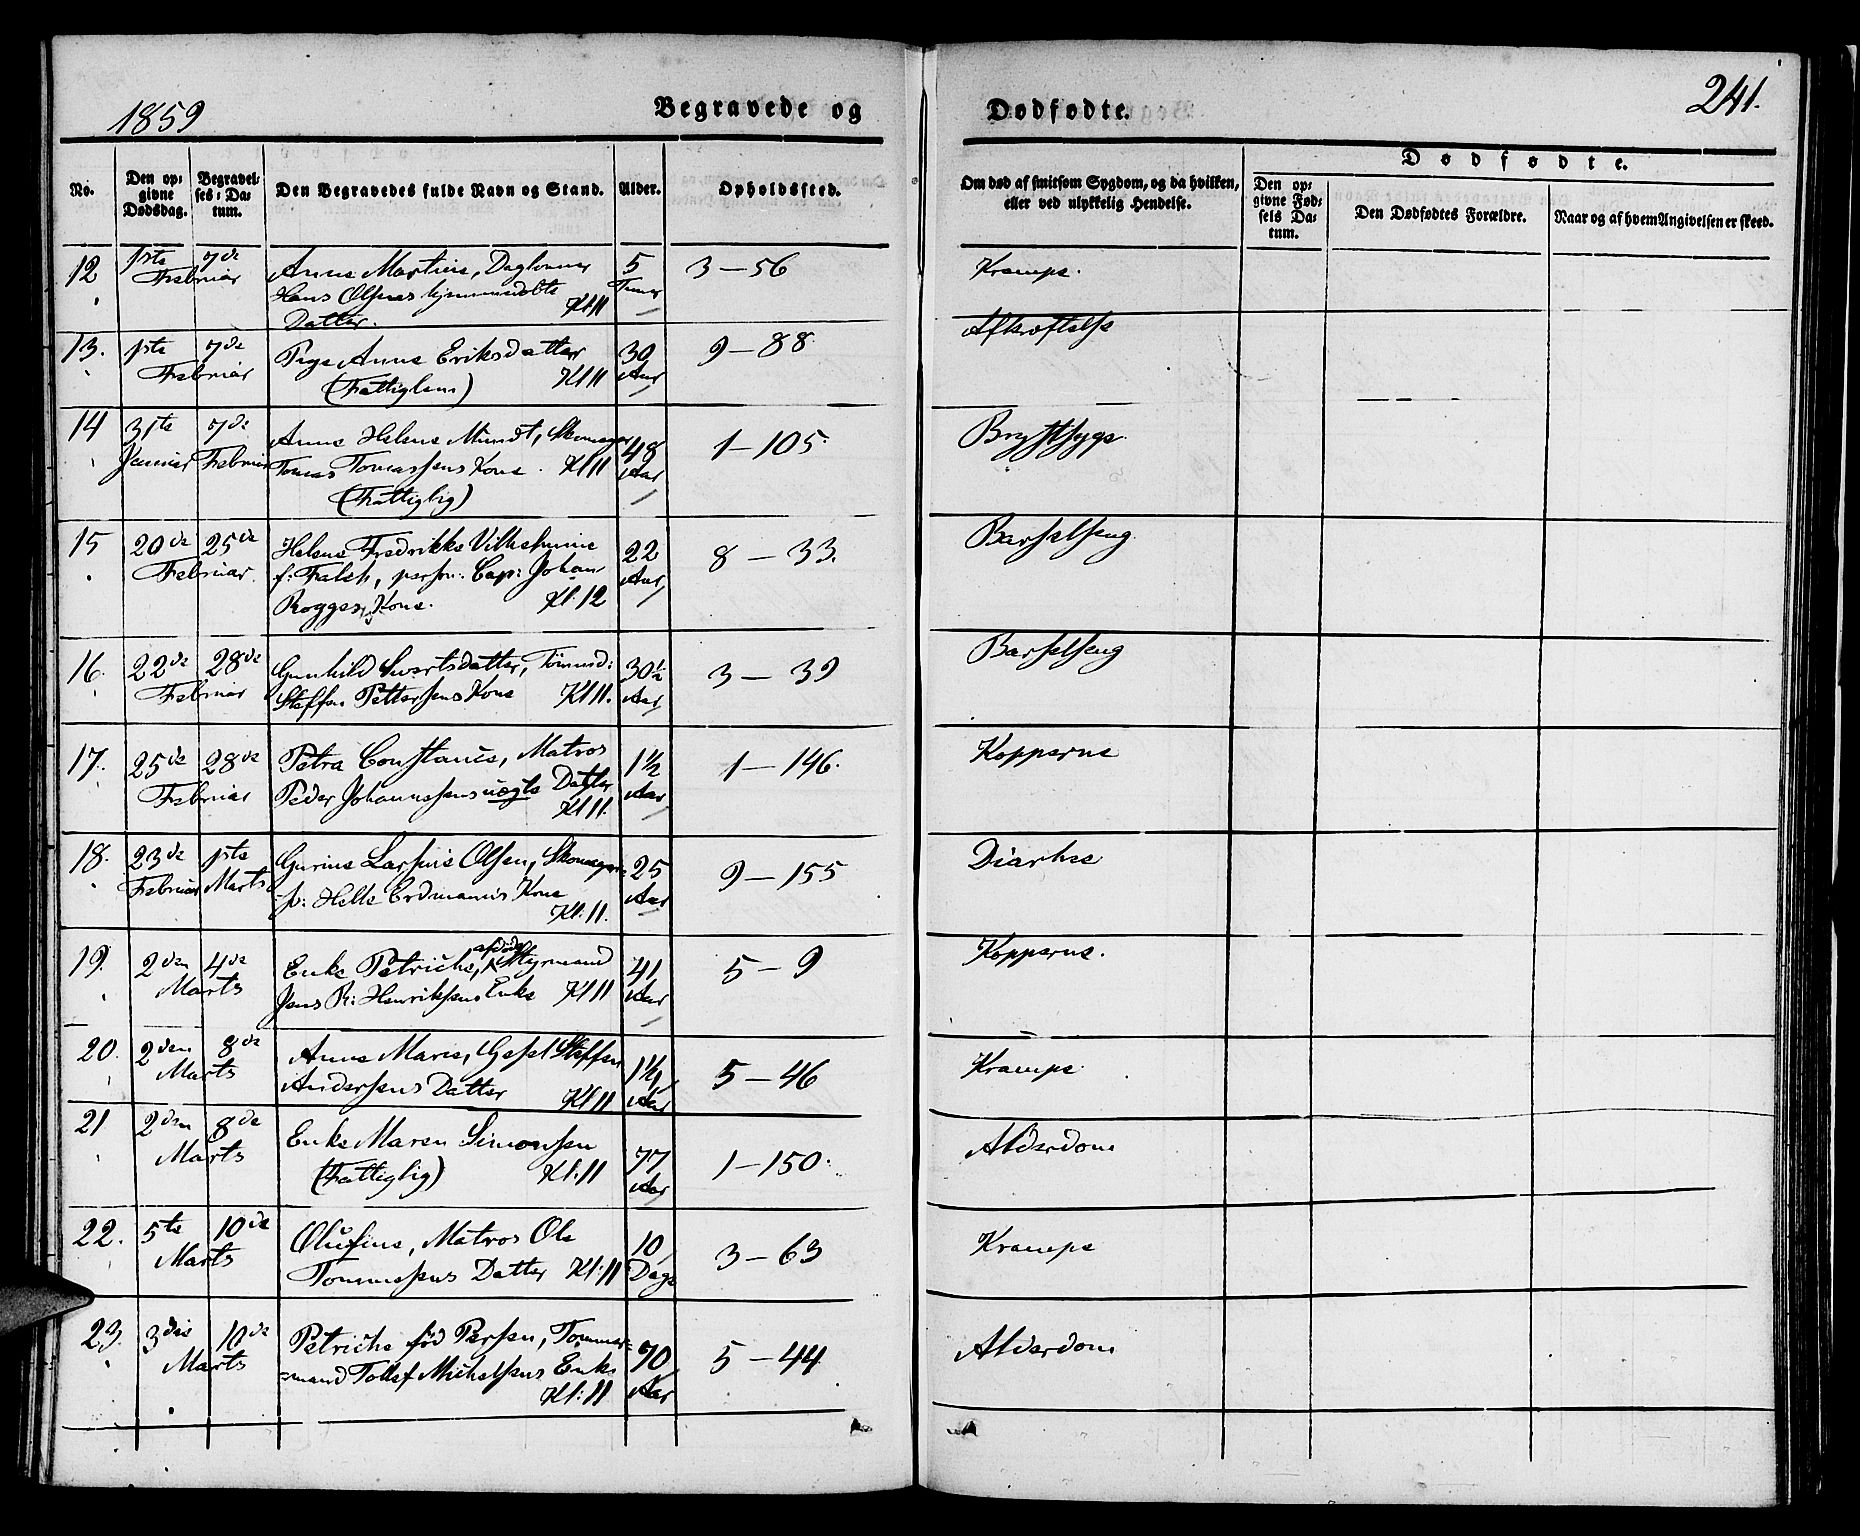 1859
Begravede og
Dødfødte.
241.
No.
Den op-
givne
Dødsdag.
Begravel-
ses-Da-
tum.
Den Begravedes fulde Navn og Stand.
Alder.
Opholdssted.
Om død af smitsom Sygdom, og da hvilken,
eller ved ulykkelig Hendelse.
Dødfødte.
Den op-
givne Fød-
sels Da-
tum.
Den Dødfødtes Forældre.
Naar og af hvem Angivelsen er skeed.
12 1ste 7de Anne Martine, Daglønner 5 3-56 Krampe.
Februar Hans Olsens hjemmedøbte Timer
Datter. Kl 11
13. 1ste 7de Pige Anne Eriksdatter 30 9-88 Afkræftelse
Februar (Fattiglem) Kl 11 Aar
14 31te 7de Anne Helene Mundt, Skomager 48 1-105. Brystsyge.
Januar Februar Tomas Tomassens Kone. Kl 11 Aar
(Fattiglig)
15 20de 25de Helene Fredrikke Vilhelmine 22 8-33. Barselseng
Februar. f: Falch, Cap: Johan Aar
Kone. Kl: 12
16. 22de 28de Gunhild Sivertsdatter, Tømmd: 30½ 3-39 Barselseng
Februar Steffen Pettersens Kone Kl 11. Aar
17. 25de 28de Petra Constance, Matros 1½ 1-146. Kopperne
Februar Peder Johannesens uægte Datter Aar
Kl 11.
18. 23de 1ste Gurine Larsine Olsen, Skomager- 25 9-155 Diarhee
Februar Marts Helle Erdmanns Kone Aar
Kl: 11.
19. 2den 4de Enke Petriche, afdøde Styrmand 41 5-9 Kopperne.
Marts Jens R: Henriksens Enke Kl 11 Aar
20. 2den 8de Anne Marie, Gesel Steffen 1½ 5-46 Krampe
Marts Andersens Datter Kl 11 Aar
21 2den 8de Enke Maren Simonsen 77 1-150. Alderdom
Marts (Fattiglig) Kl: 11 Aar
22. 5te 10de Olufine, Matros Ole 10 3-63 Krampe
Marts Tommesens Datter Kl: 11 Dage
23. 3die 10de Petriche fød Persen, Tømmer= 70 5-44 Alderdom
Marts =mand Tollef Michelsens Enke Aar
Kl: 11